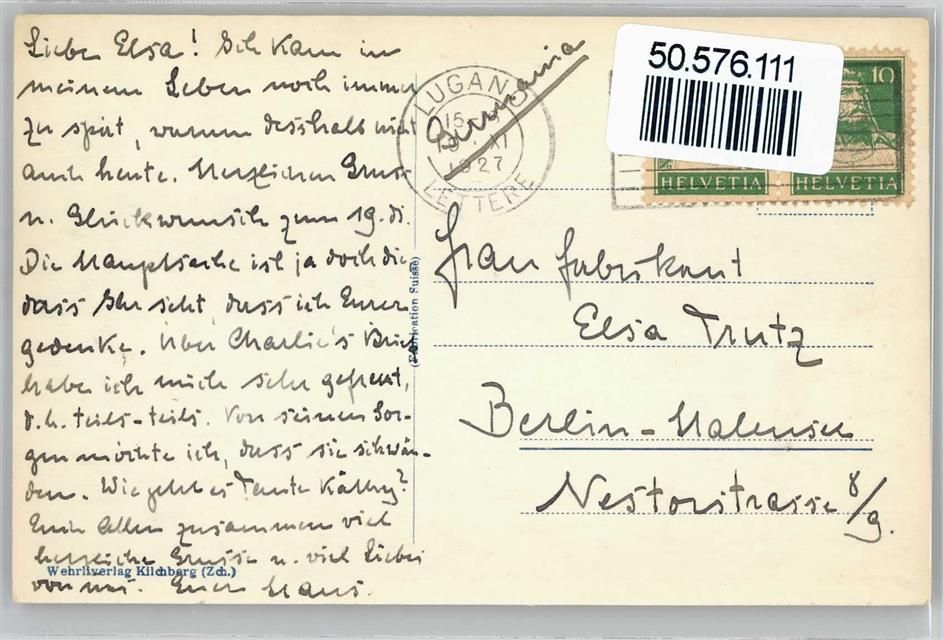 Liebe Elsa! Ich kam in
meinem Leben noch immer
zu spät, warum desshalb nicht
auch heute. Herzlichen Gruss
u. Glückwunsch zum 19. ds.
Die Hauptsache ist ja doch die
dass Ihr seht, dass ich Eurer
gedenke. Über Charlie's Brief
habe ich mich sehr gefreut,
d.h. teils-teils. Von seinen Sor-
gen möchte ich, dass sie schwän-
den. Wie geht es Tante Käthy?
Euch Allen zusammen viel
herzliche Grüsse u. viel Liebes
von uns. Euer Hans.
Wehrliverlag Kilchberg (Zch.)
(Fabrication Suisse)
LUGANO
15
XI
1927
LETTERE
Germania
50.576.111
10
HELVETIA HELVETIA
Frau Fabrikant
Elsa Trutz
Berlin-Halensee
Nestorstrasse 8/9.